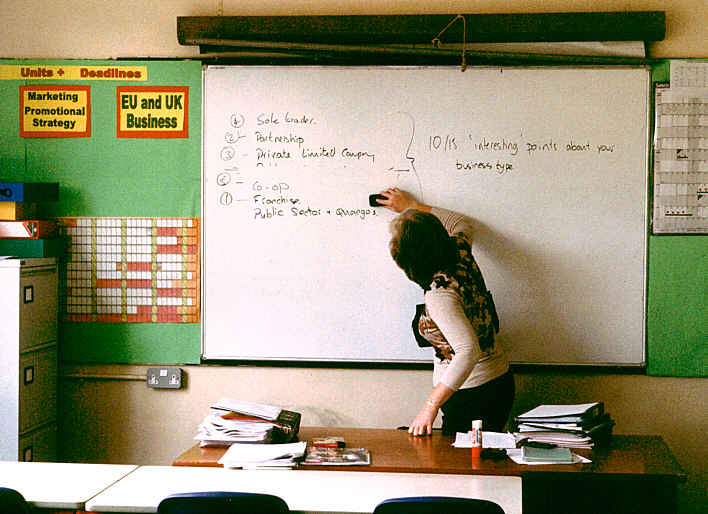 Units + Deadlines
Marketing
Promotional
Strategy
EU and UK
Business
① Sole trader.
② - Partnership
③ - Private Limited Company
Co-op
① - Franchise
Public Sector + Quangos
10/15 'interesting' points about your
business type